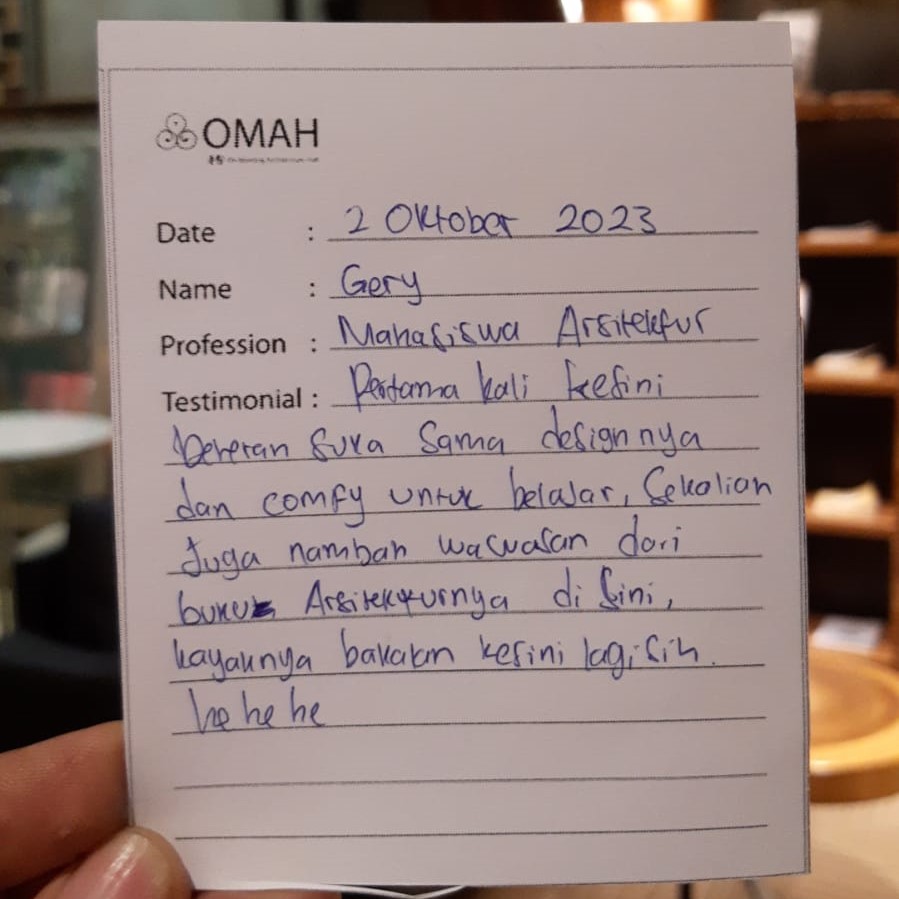 OMAH
Date : 2 Oktober 2023
Name : Gery
Profession : Mahasiswa Arsitektur
Testimonial : Pertama kali kesini
beneran suka sama designnya
dan comfy untuk belajar, Sekalian
Juga nambah wawasan dari
buku2 Arsitekturnya di sini,
kayaknya bakalan kesini lagi sih.
he he he